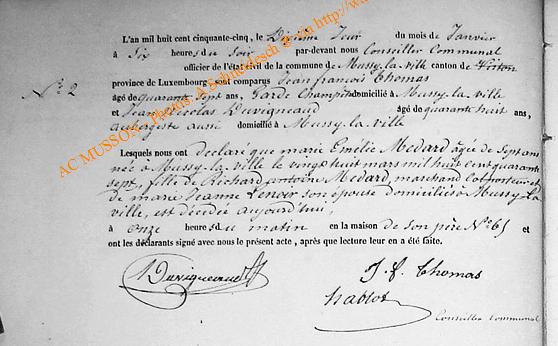 L'an mil huit cent cinquante-cinq, le Dixième Jour du mois de Janvier
à Six heures du Soir par-devant nous Conseiller Communal
officier de l'état civil de la commune de Mussy-la-ville canton de Virton
N° 2
province de Luxembourg, sont comparus Jean françois Thomas
âgé de quarante sept ans, Garde Champêtre domicilié à Mussy-la-ville
et Jean Nicolas Duvigneaud âgé de quarante huit ans,
aubergiste aussi domicilié à Mussy-la-ville
Lesquels nous ont déclaré que marie Emélie Medard âgée de Sept ans
née à Mussy-la-ville le vingt huit mars mil huit cent quarante
sept, fille de Richard antoine Medard, marchand Colporteur et
de marie Jeanne Lenoir son épouse domiciliés à Mussy-la
ville, est décédée aujourd'hui,
à Onze heures du matin en la maison de son père N° 65 et
ont les déclarants signé avec nous le présent acte, après que lecture leur en a été faite.
Duvigneaud
J. f. Thomas
hablot
Conseiller Communal
AC MUSSON - Photos. A Schneidesch 3 - in http://www.